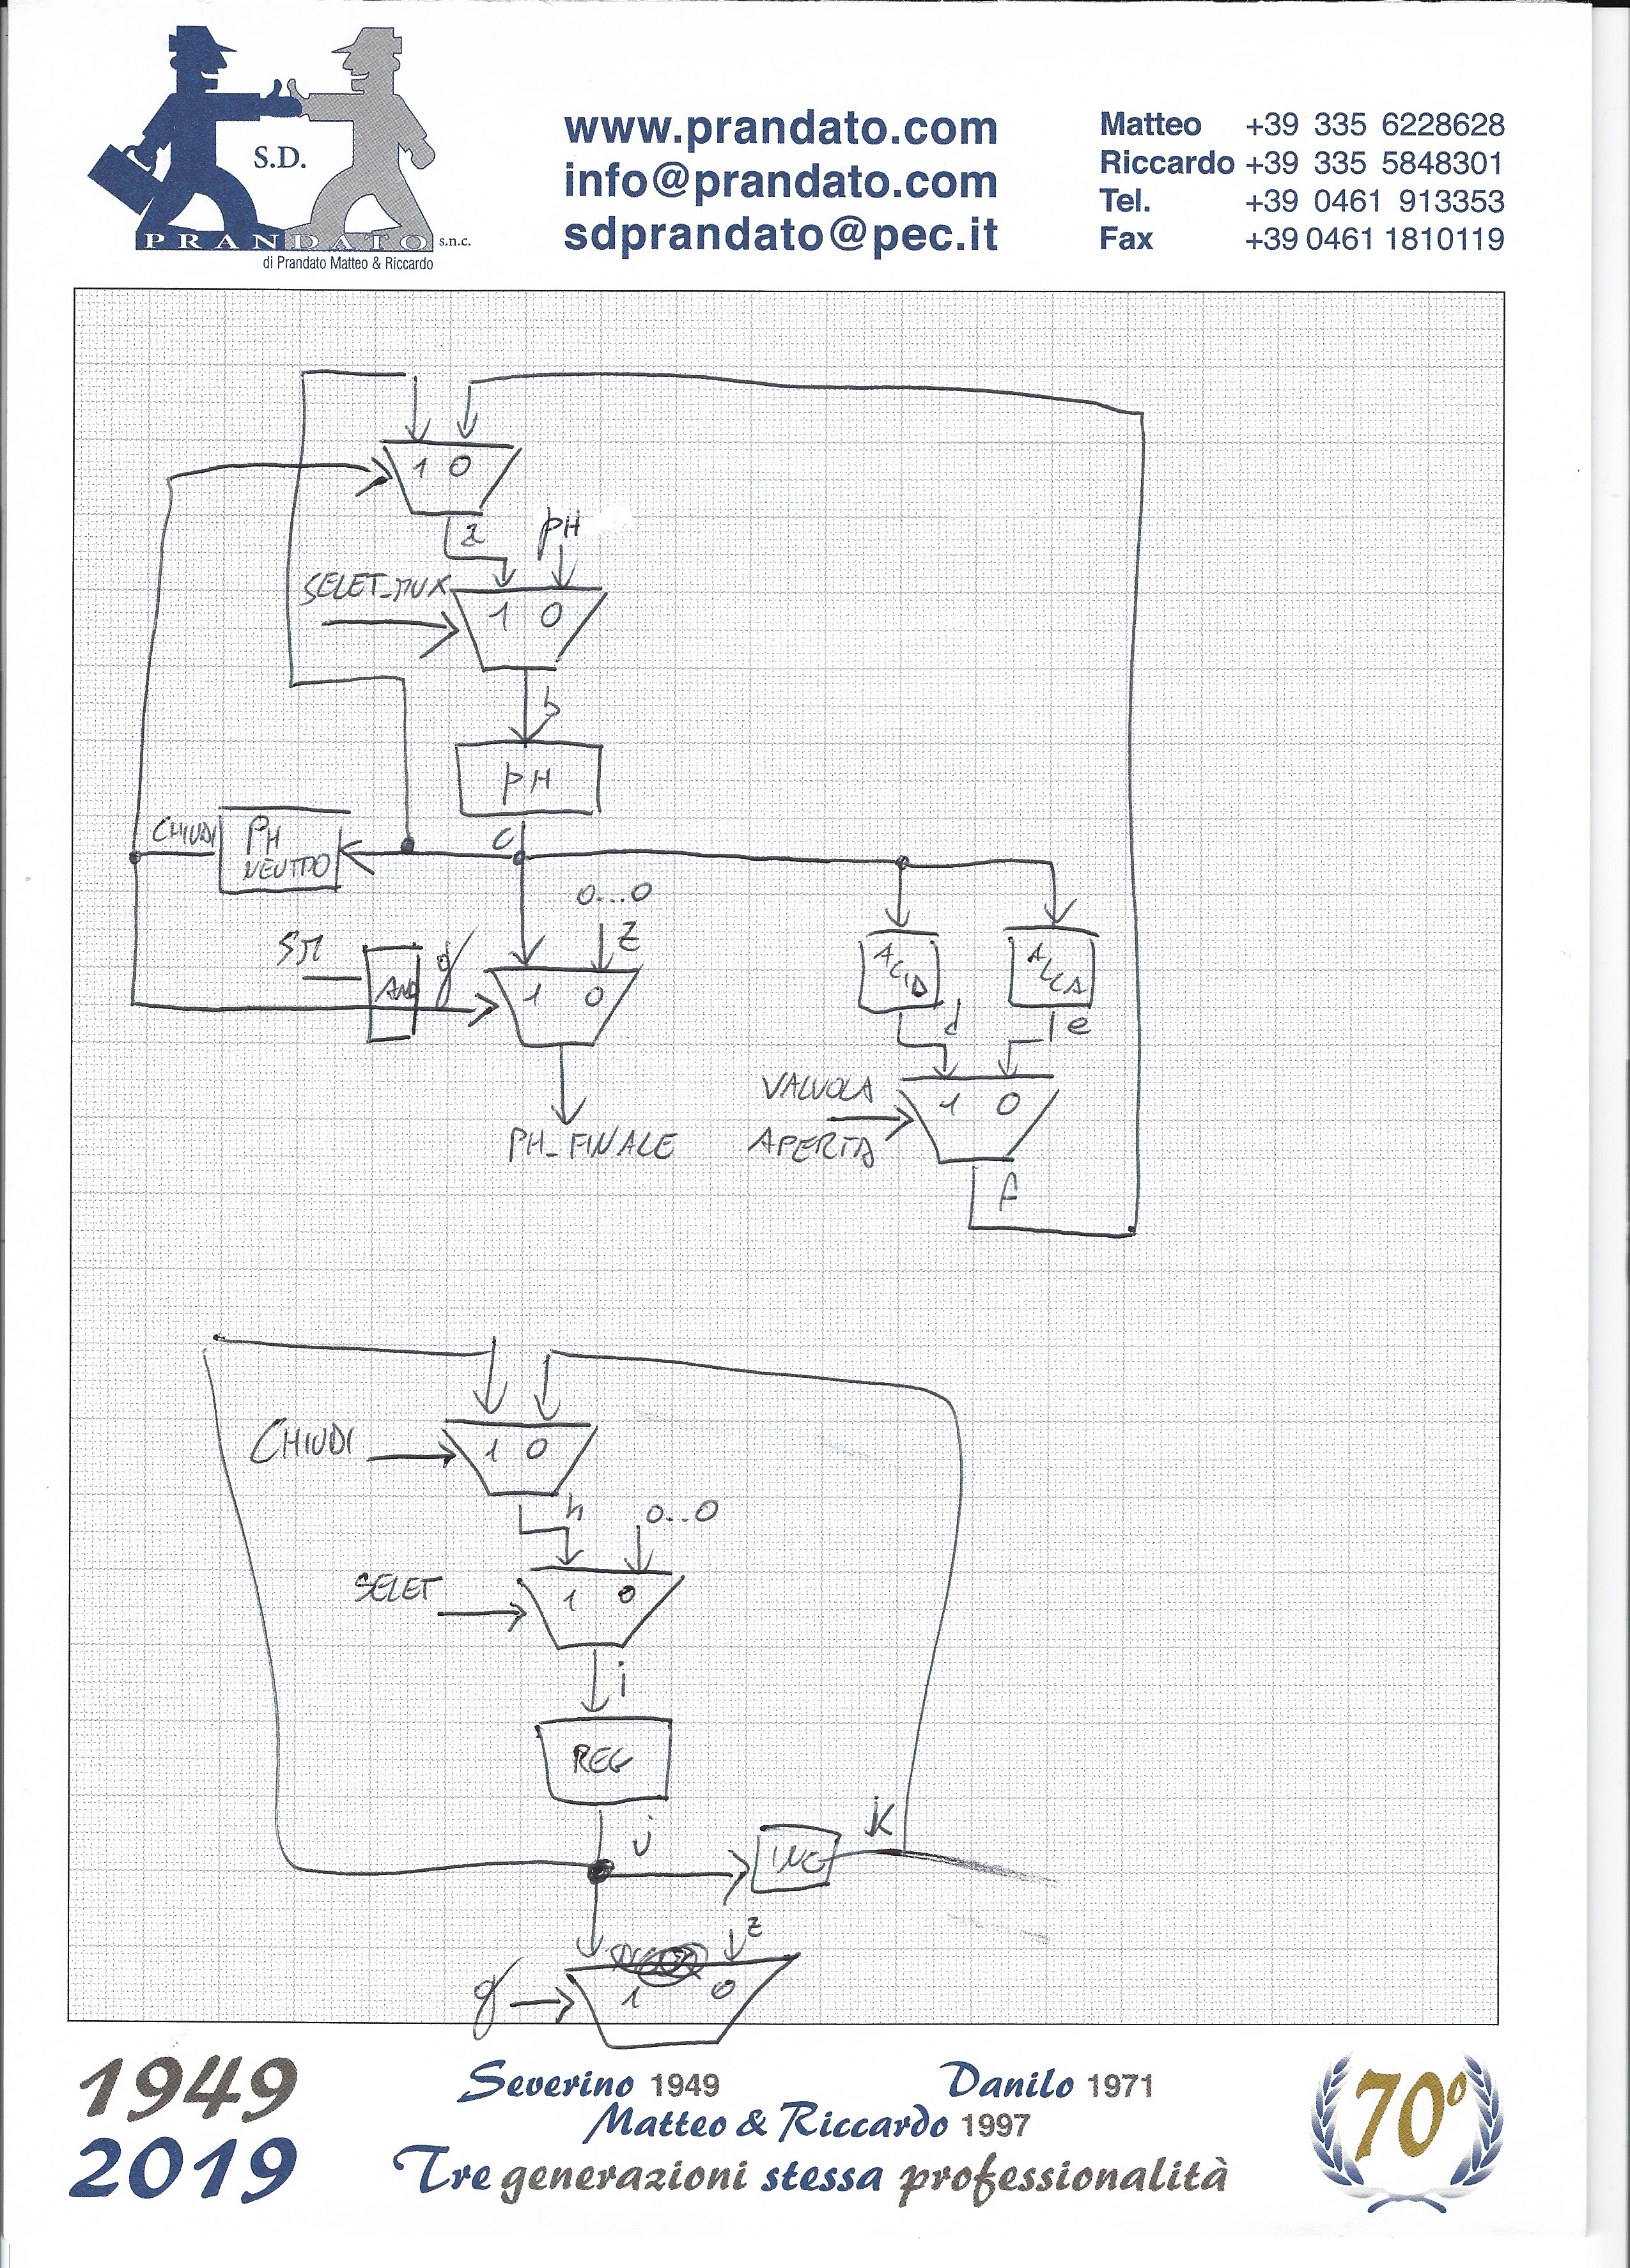 S.D.
PRANDATO s.n.c.
di Prandato Matteo & Riccardo
www.prandato.com
info@prandato.com
sdprandato@pec.it
Matteo +39 335 6228628
Riccardo +39 335 5848301
Tel. +39 0461 913353
Fax +39 0461 1810119
1 0
a
pH
SELET_MUX
1 0
b
pH
CHIUDI
PH
NEUTRO
c
0...0
z
SM
AND
g
1 0
ACID
ALCA
d
e
VALVOLA
APERTA
1 0
PH_FINALE
f
CHIUDI
1 0
h
0...0
SELET
1 0
i
REG
j
INC
K
z
g
1 0
1949
2019
Severino 1949
Danilo 1971
Matteo & Riccardo 1997
Tre generazioni stessa professionalità
70°